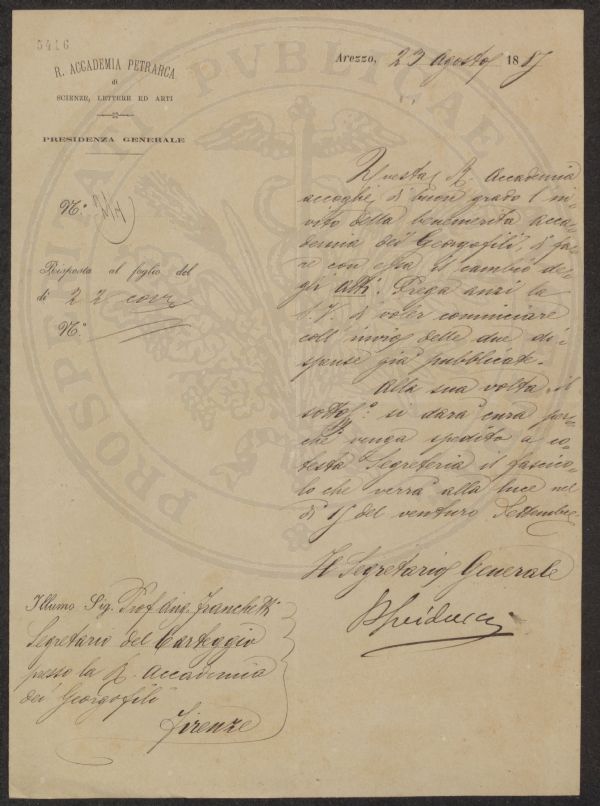 5416
R. ACCADEMIA PETRARCA
di
SCIENZE, LETTERE ED ARTI
PRESIDENZA GENERALE
N.°
Risposta al foglio del
di 22 corr.
N.°
Arezzo, 23 Agosto 1887
Questa R. Accademia
accoglie di buon grado l'in-
vito della benemerita acca-
demia dei Georgofili, di fa-
re con essa il cambio de-
gli Atti. Prega anzi la
S. V. di voler cominciare
coll'invio delle due di-
spense già pubblicate.
Alla sua volta il
sottos.° si darà cura per-
chè venga spedito a co-
testa Segreteria il fascico-
lo che verrà alla luce nel
dì 15 del venturo Settembre.
Il Segretario Generale
Illumo Sig. Prof. Aug. Franchetti
Segretario del Carteggio
presso la R. Accademia
dei Georgofili
Firenze
PROSPERITATI PVBLICAE